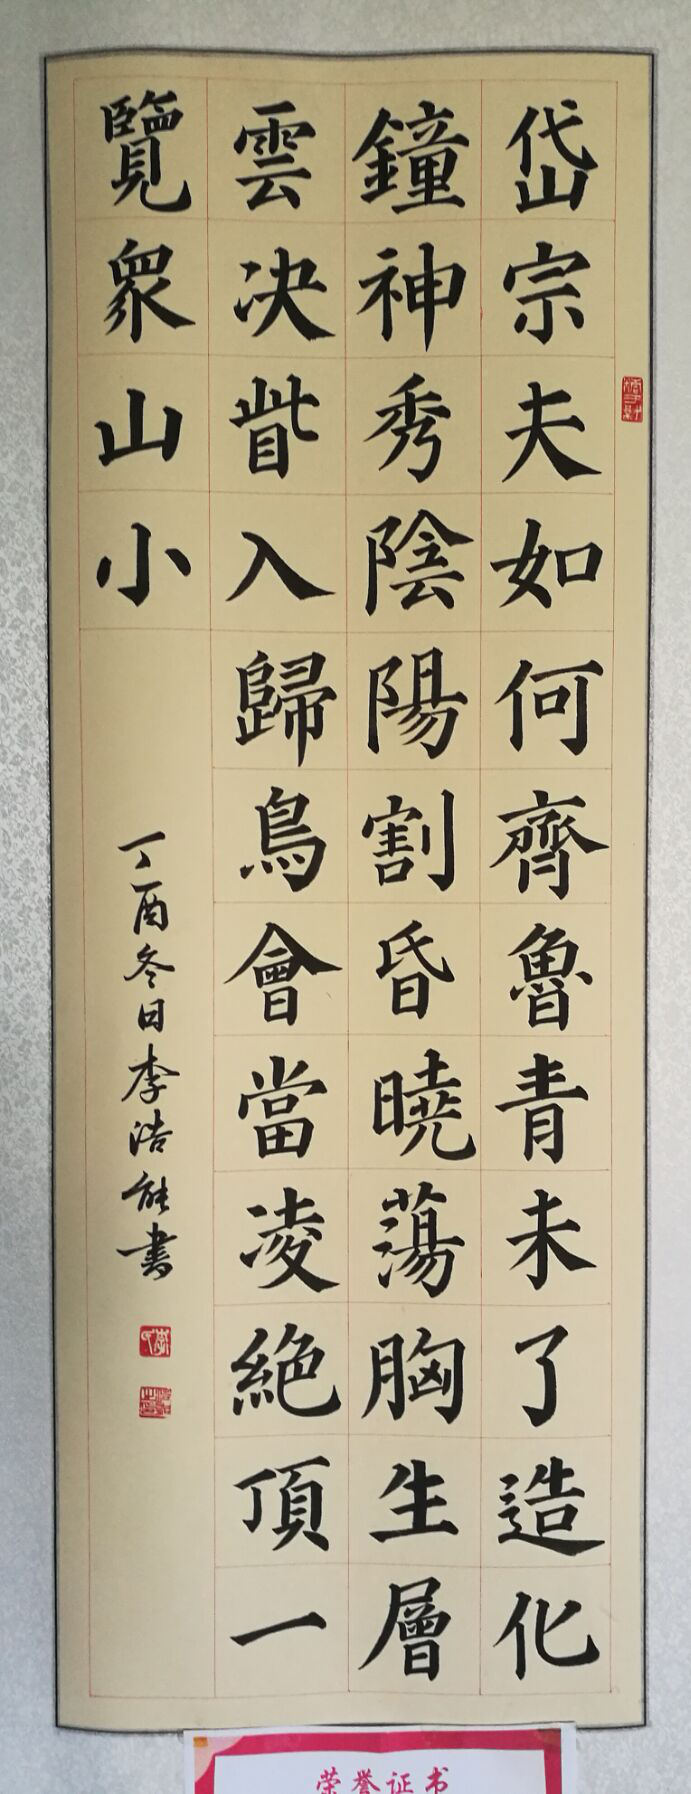 岱宗夫如何齊魯青未了造化
鐘神秀陰陽割昏曉蕩胸生層
雲決眥入歸鳥會當凌絕頂一
覽衆山小
丁酉冬日李浩能書
荣誉证书